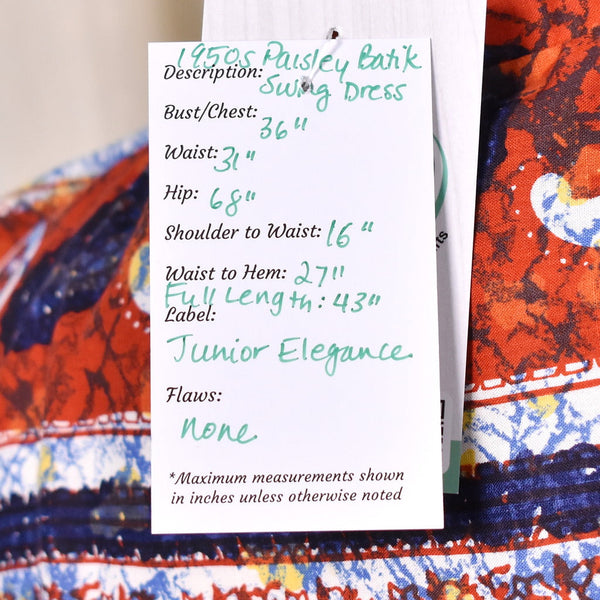 1950s Paisley Batik
Description: Swing Dress
Bust/Chest: 36"
Waist: 31"
Hip: 68"
Shoulder to Waist: 16"
Waist to Hem: 27"
Full Length: 43"
Label:
Junior Elegance
Flaws:
none
*Maximum measurements shown
in inches unless otherwise noted